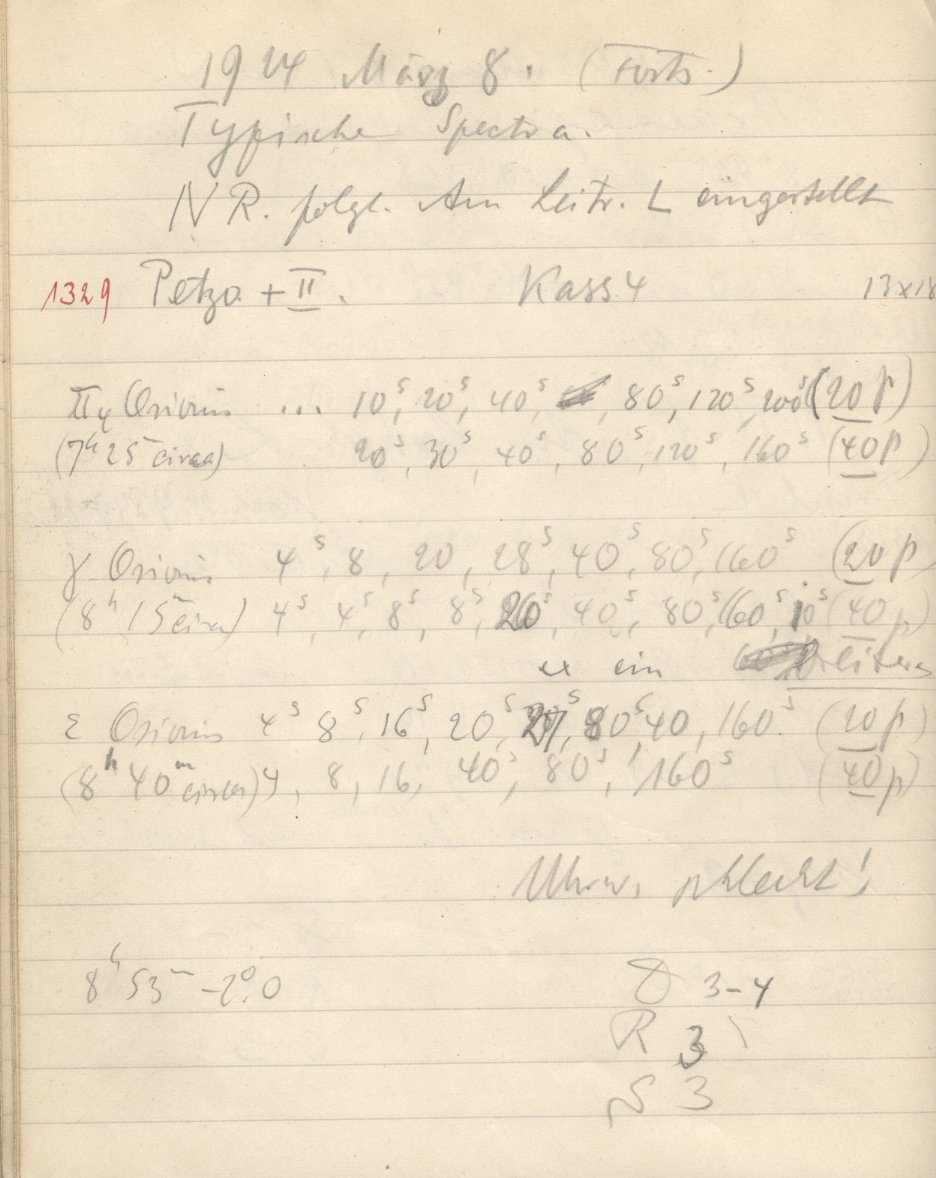 1924 März 8. (Forts.)
Typische Spectra.
N R. folgt. Am Leitr. L eingestellt
1329 Petzo + II. Kass 4 13x18
π4 Orionis ... 10s, 20s, 40s, 80s, 120s, 200s (20 p)
(7h 25m circa) 20s, 30s, 40s, 80s, 120s, 160s (40 p)
γ Orionis 4s, 8, 20, 28s, 40s, 80s, 160s (20 p
(8h 15m circa) 4s, 4s, 8s, 8s, 20s, 40s, 80s, 160s, 10s (40 p)
ex ein
ε Orionis 4s 8s, 16s, 20s, 80s 40, 160s. (20 p)
(8h 40m circa) 4, 8, 16, 40s, 80s, 160s (40 p)
Uhrw. schlecht!
8h 53m -2°.0 3-4
R 3
S 3